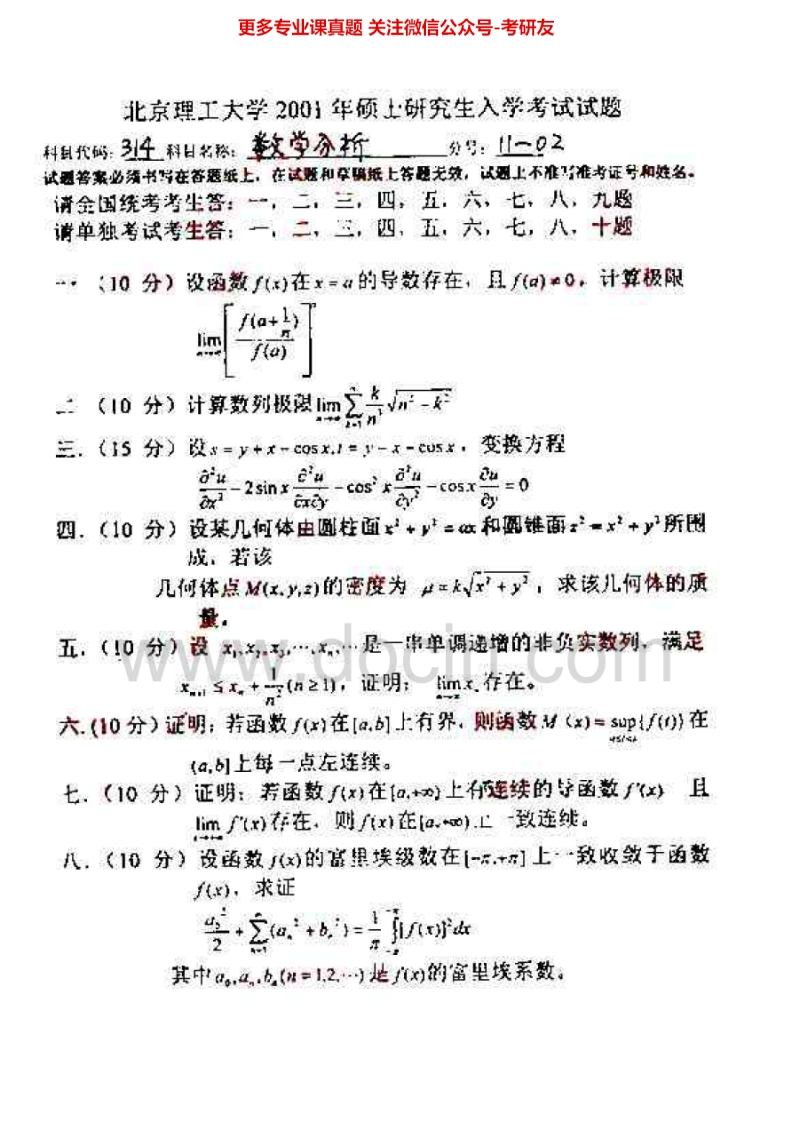 更多专业课真题 关注微信公众号-考研友
北京理工大学2001年硕士研究生入学考试试题
科目代码: 314 科目名称: 数学分析 分号: 11-02
试题答案必须书写在答题纸上，在试题和草稿纸上答题无效，试题上不准写准考证号和姓名。
请全国统考考生答: 一，二，三，四，五，六，七，八，九题
请单独考试考生答: 一，二，三，四，五，六，七，八，十题
一．（10 分）设函数 f(x)在 x = a 的导数存在，且 f(a)≠0，计算极限
lim [f(a+1/n)/f(a)]^n
二．（10 分）计算数列极限 lim_{n→∞} ∑_{k=1}^{n} k/n³ √(n²-k²)
三．（15 分）设 s = y + x - cos x, t = y - x - cos x，变换方程
∂²u/∂x² - 2sin x ∂²u/∂x∂y - cos² x ∂²u/∂y² - cos x ∂u/∂y = 0
四．（10 分）设某几何体由圆柱面 x² + y² = ax 和圆锥面 z² = x² + y² 所围
成，若该
几何体点 M(x, y, z)的密度为 μ = k√(x² + y²)，求该几何体的质
量。
五．（10 分）设 x₁,x₂,x₃,…,x_n,…是一串单调递增的非负实数列，满足
x_{n+1} ≤ x_n + 1/n² (n ≥ 1)，证明： lim x_n 存在。
六．(10 分) 证明：若函数 f(x)在[a,b]上有界，则函数 M(x) = sup{f(t)} 在
(a,b]上每一点左连续。
七．（10 分）证明：若函数 f(x)在[a,+∞)上有连续的导函数 f'(x) 且
lim f'(x)存在，则 f(x)在[a,+∞)上一致连续。
八．（10 分）设函数 f(x)的富里埃级数在[-π,+π]上一致收敛于函数
f(x)，求证
a₀²/2 + ∑_{n=1}^{∞}(a_n² + b_n²) = 1/π ∫[f(x)]²dx
其中 a₀,a_n,b_n(n = 1,2,…)是 f(x)的富里埃系数。
www.docin.com